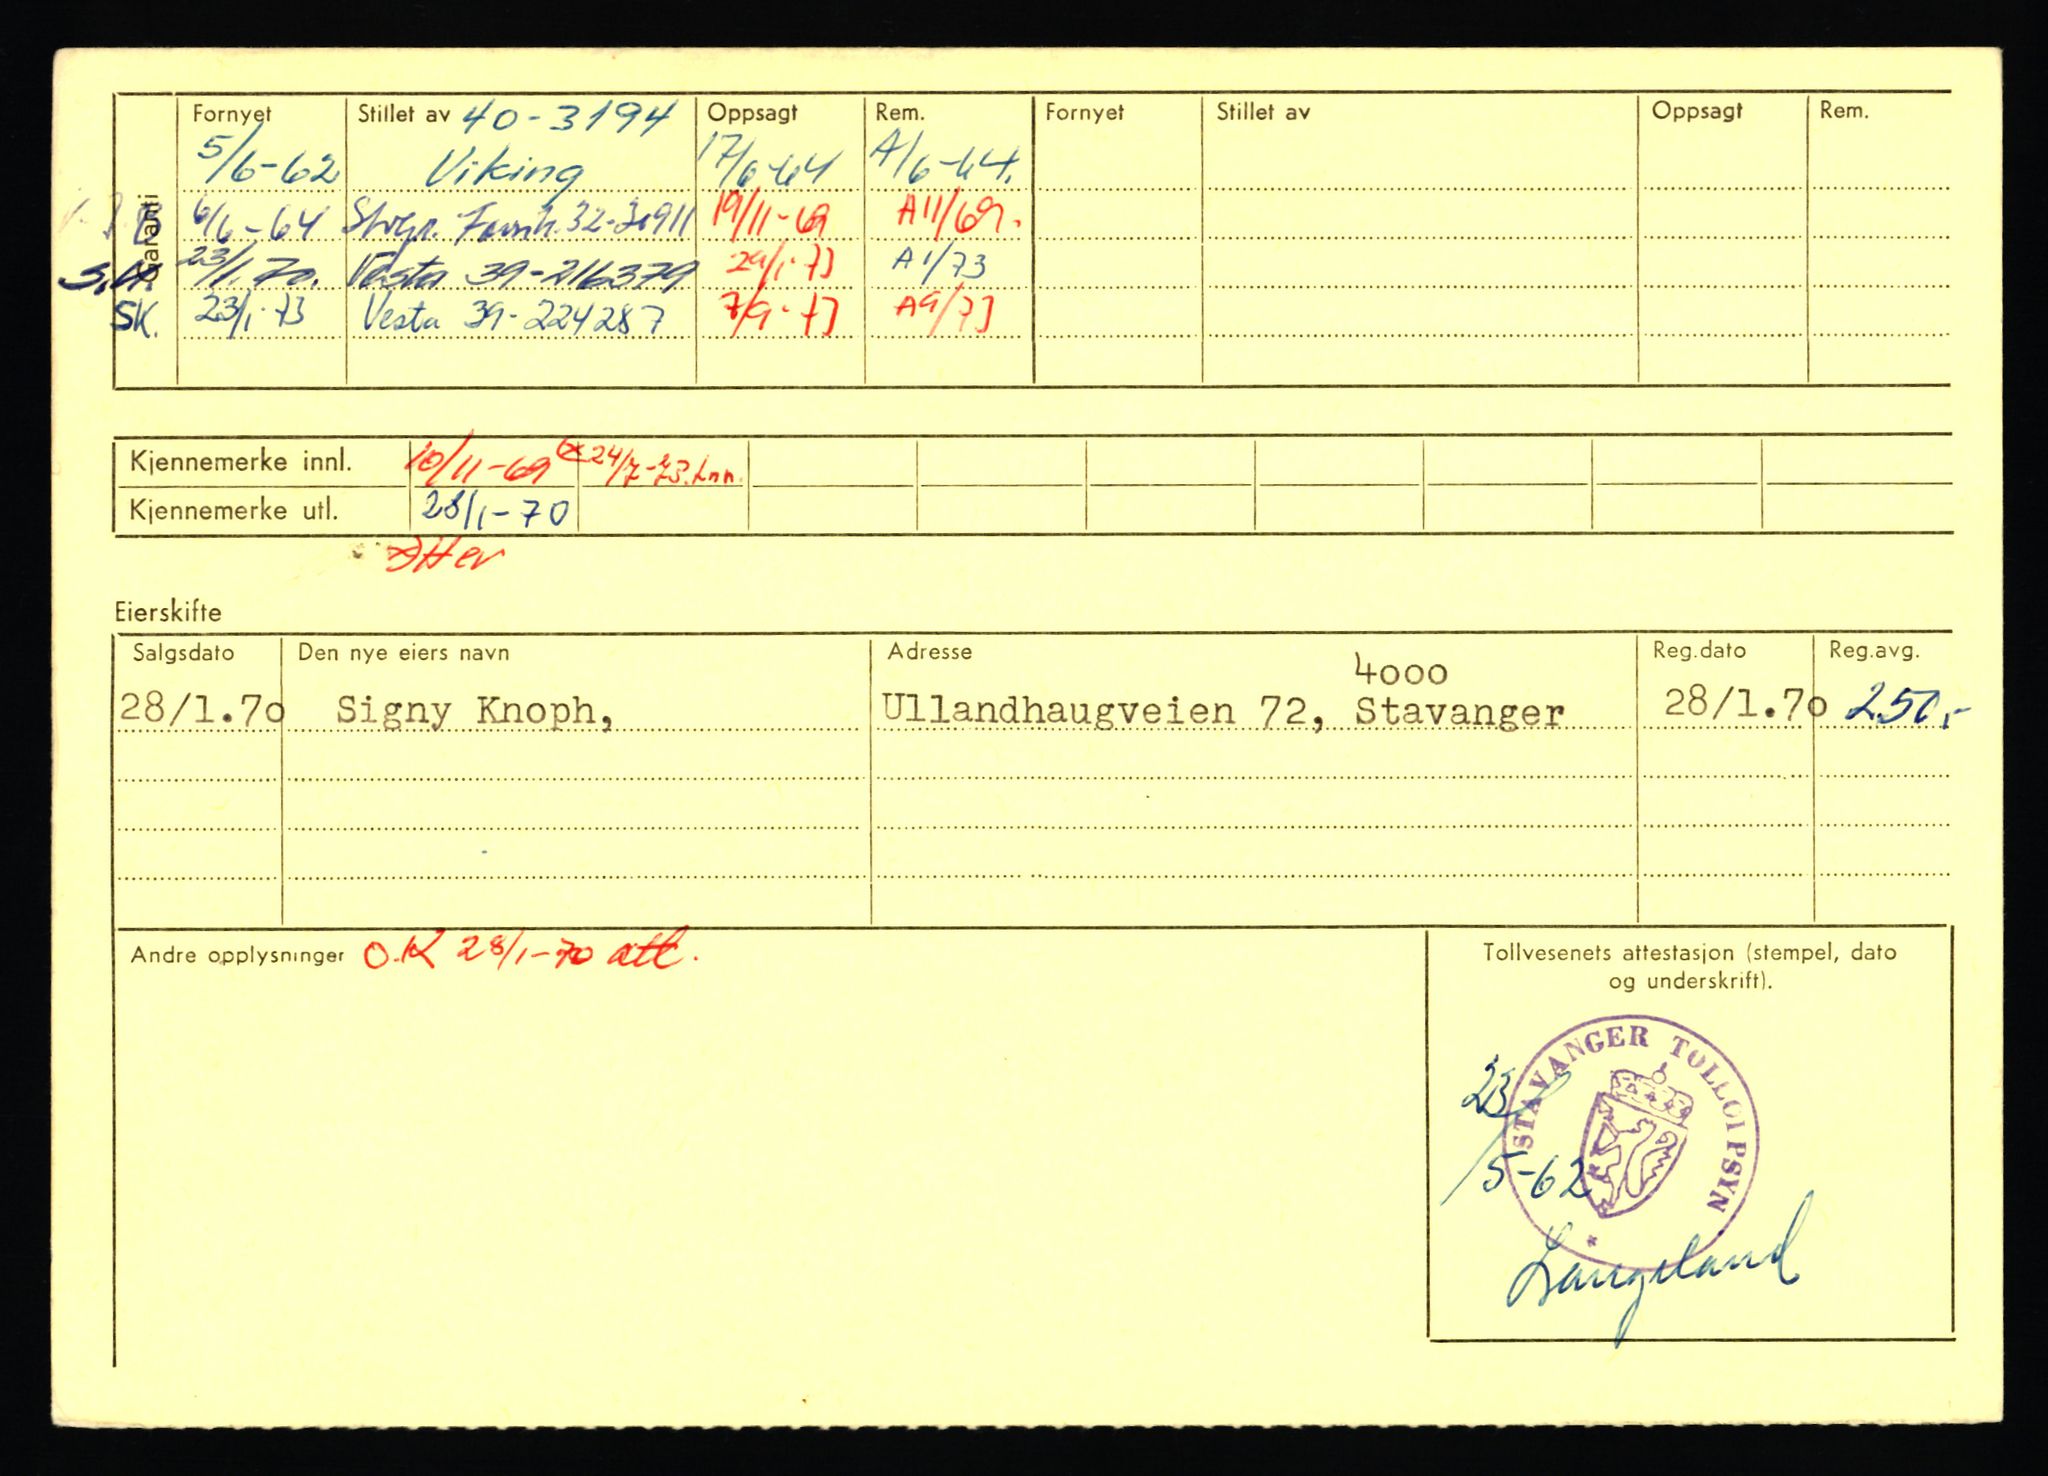 Garanti
Fornyet Stillet av 40-3194 Oppsagt Rem. Fornyet Stillet av Oppsagt Rem.
5/6-62 Viking 17/6-64 A/6-64.
6/6-64 32-30911 19/11-69 A11/69.
S.K. 23/1.70. Vesta 39-216379 29/1-73 A1/73
SK. 23/1-73 Vesta 39-224287 7/9-73 A9/73
Kjennemerke innl. 10/11-69 24/7-73.
Kjennemerke utl. 28/1-70
Eierskifte
Salgsdato Den nye eiers navn Adresse Reg.dato Reg.avg.
4000
28/1.70 Signy Knoph, Ullandhaugveien 72, Stavanger 28/1.70 250,-
Andre opplysninger O.K 28/1-70 att.
Tollvesenets attestasjon (stempel, dato
og underskrift).
STAVANGER TOLLOPPSYN
23/5-62
Langeland